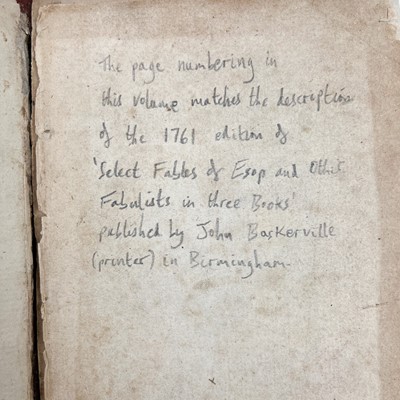 The page numbering in
this volume matches the description
of the 1761 edition of
'Select Fables of Esop and Other
Fabulists in three Books'
published by John Baskerville
(printer) in Birmingham.
x